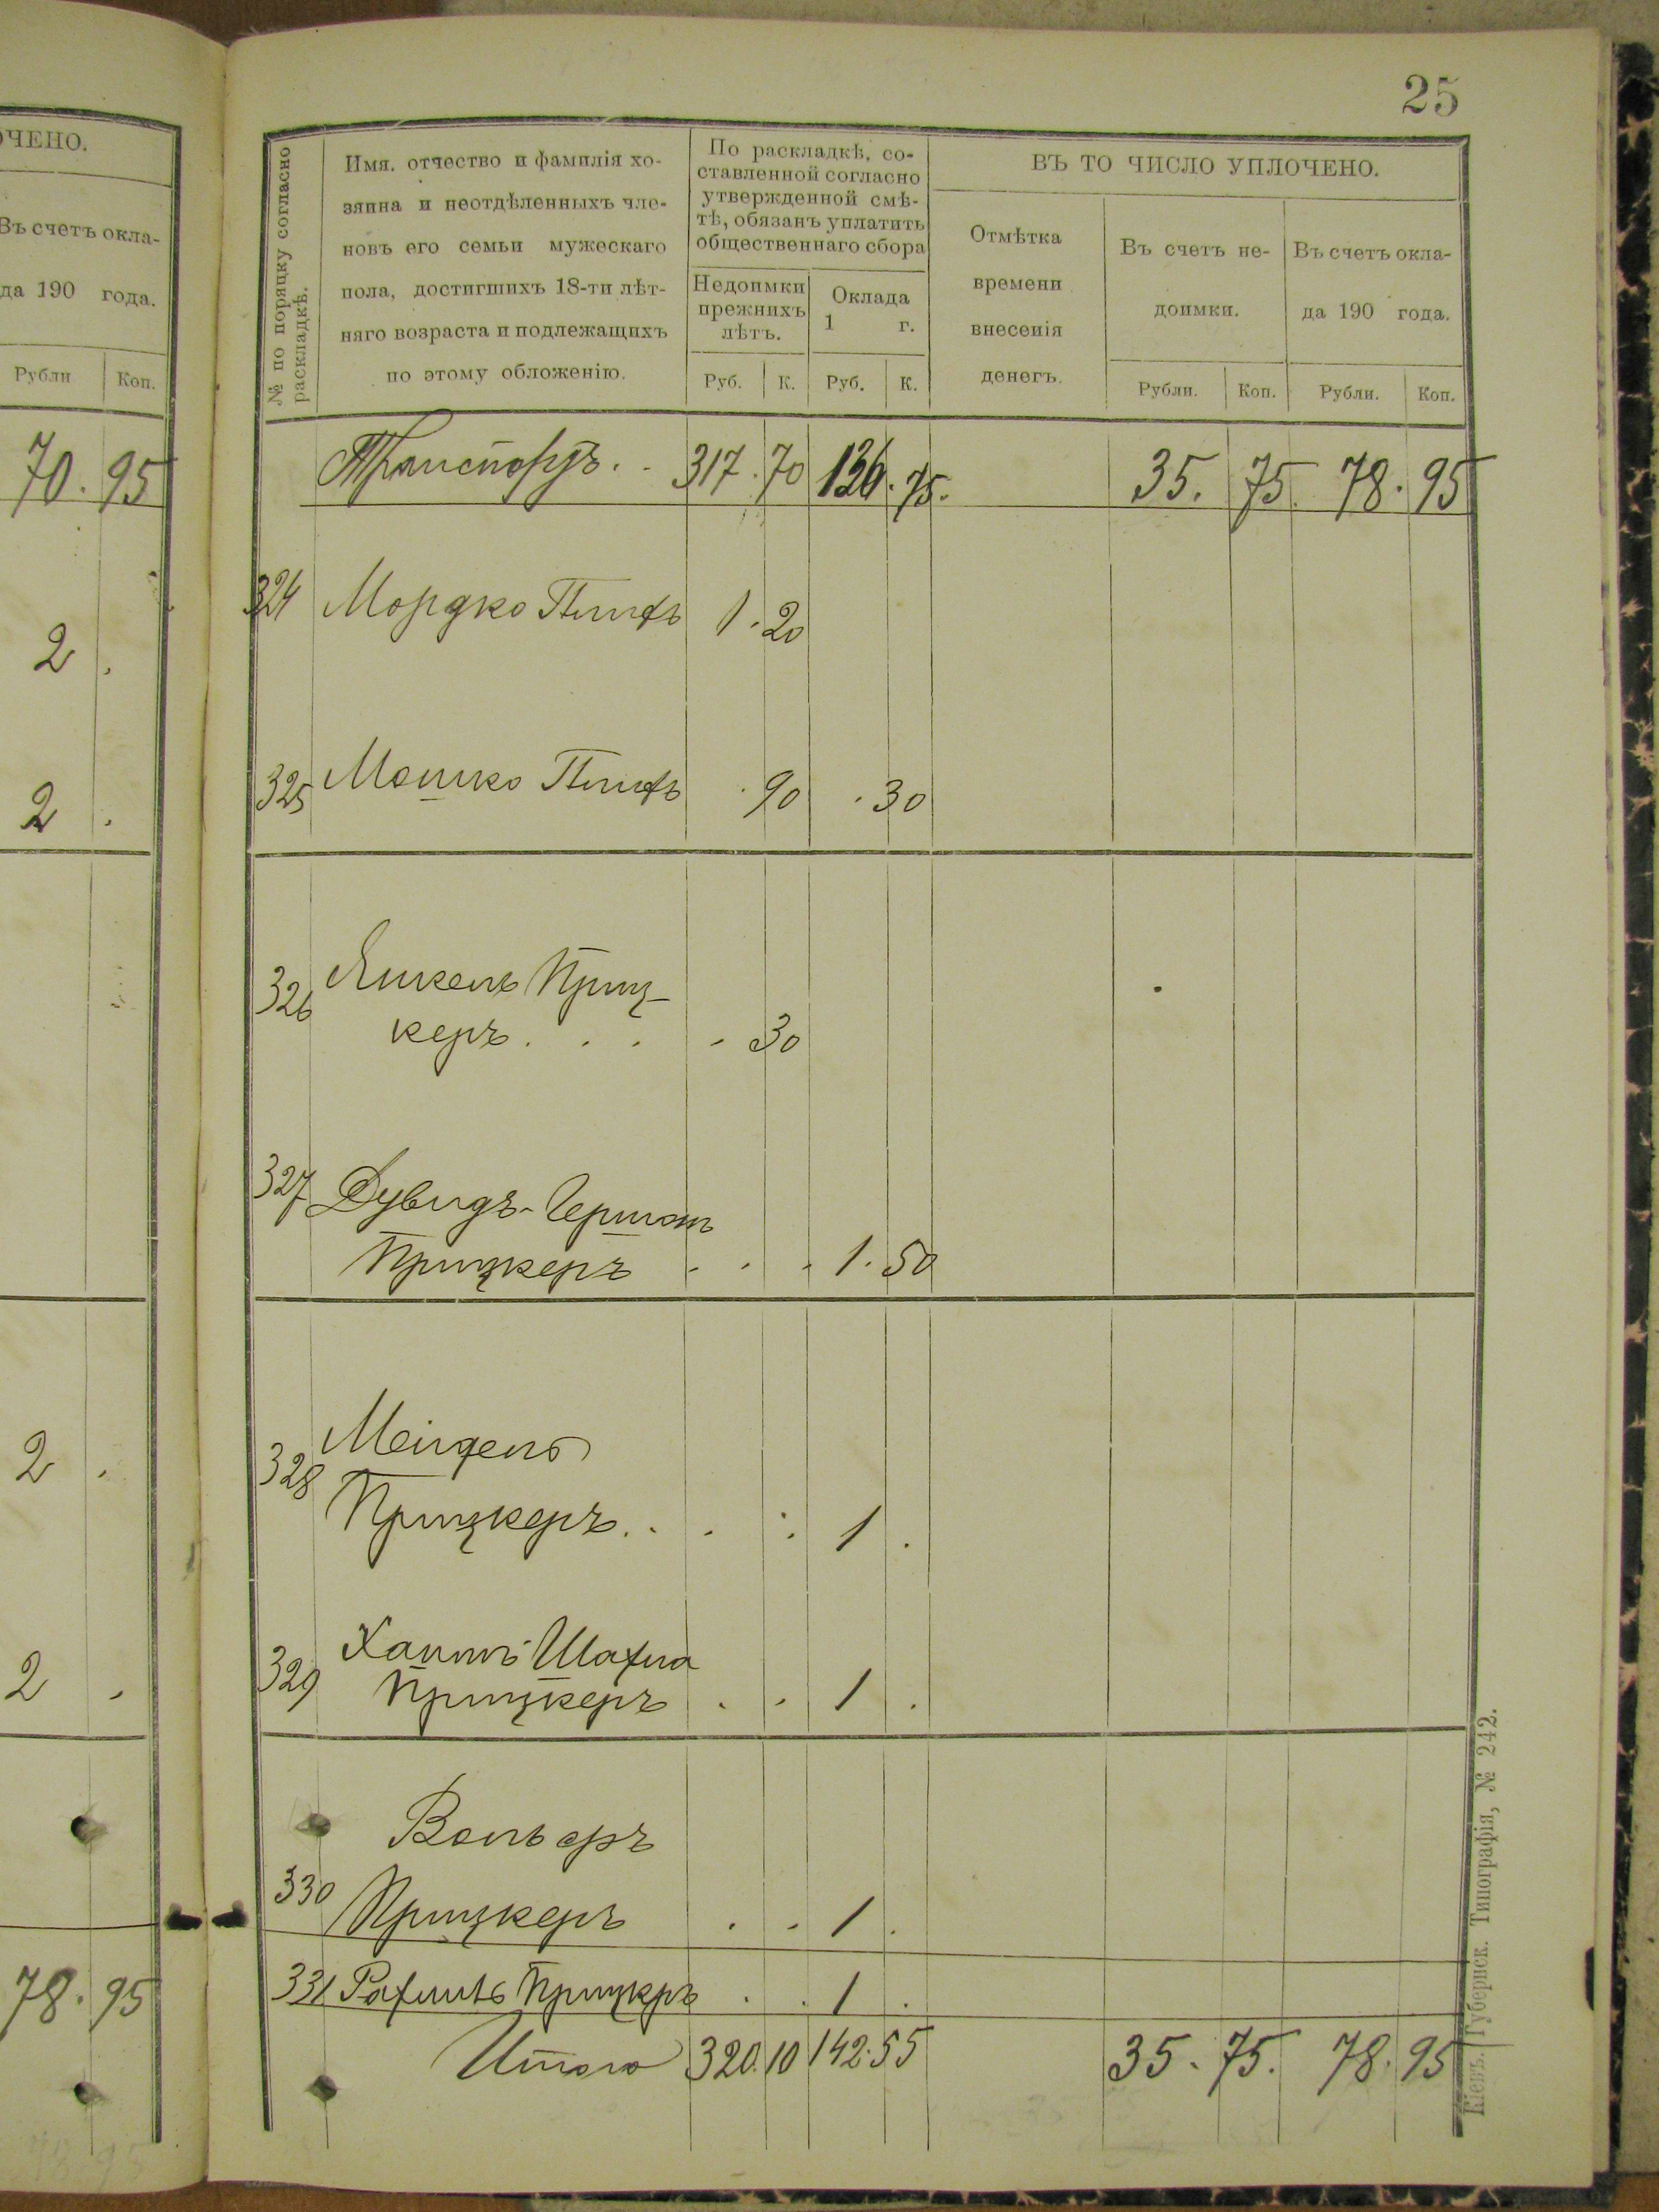 ОЧЕНО.
Въ счетъ окла-
да 190 года.
Рубли Коп.
70. 95
2 .
2 .
2 .
2 .
78. 95
25
№ по поряцку согласно
раскладкѣ.
Имя. отчество и фамилія хо-
зяина и неотдѣленныхъ чле-
новъ его семьи мужескаго
пола, достигшихъ 18-ти лѣт-
няго возраста и подлежащихъ
по этому обложенію.
По раскладкѣ, со-
ставленной согласно
утвержденной смѣ-
тѣ, обязанъ уплатить
общественнаго сбора
Недоимки
прежнихъ
лѣтъ.
Оклада
1 г.
Руб. К. Руб. К.
ВЪ ТО ЧИСЛО УПЛОЧЕНО.
Отмѣтка
времени
внесенія
денегъ.
Въ счетъ не-
доимки.
Въ счетъ окла-
да 190 года.
Рубли. Коп. Рубли. Коп.
Транспортъ. . 317. 70 136. 75. 35. 75. 78. 95
324 Мордко 1. 20
325 Мошко . 90 . 30
326 Янкель Приц-
керъ . . . . 30
327 Дувидъ-Гершон
Прицкеръ . . . 1. 50
328 Мендель
Прицкеръ. . . : 1 .
329 Хаимъ-Шахна
Прицкеръ . . 1 .
Вольфъ
330 Прицкеръ . . 1 .
331 Рахмиль Прицкръ . . 1 .
Итого 320. 10 142. 55 35. 75. 78. 95
Кіевъ. Губернск. Типографія, № 242.